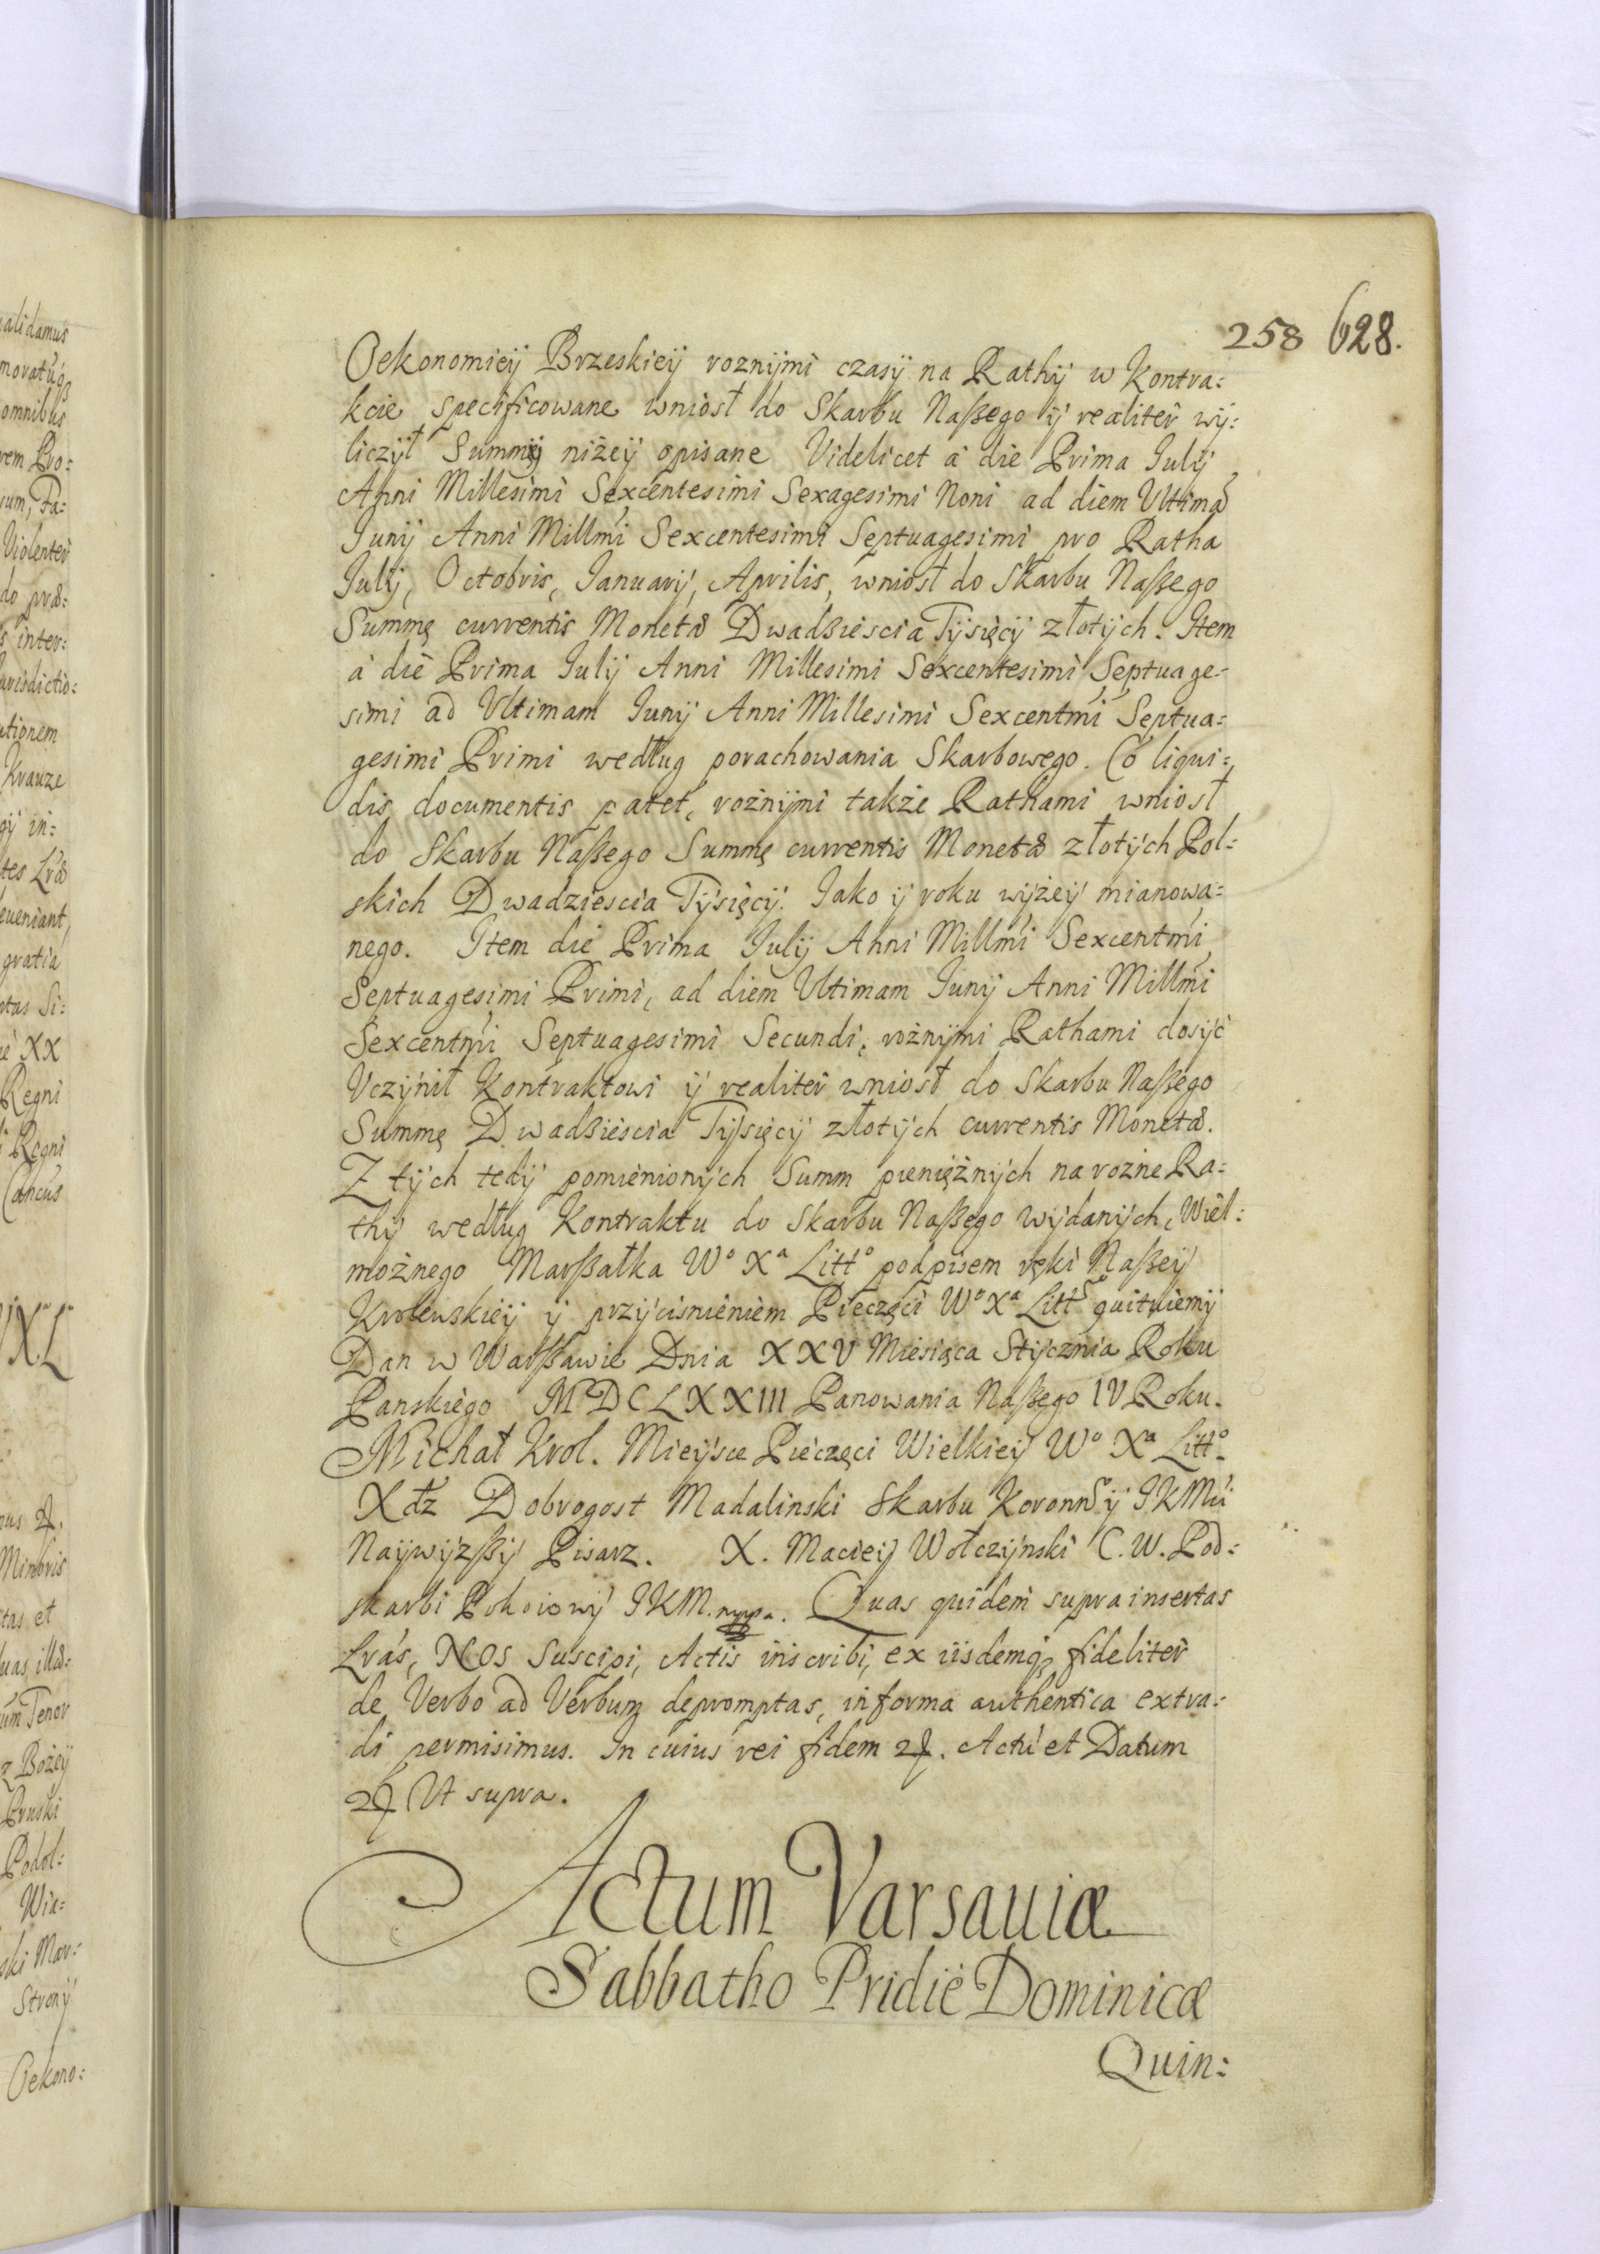 258 628.
Oekonomieÿ Brzeskieÿ roznÿmi czasÿ na Rathÿ w Kontra:
kcie specificowane wniosł do Skarbu Naßego ÿ realiter wÿ:
liczÿł Summÿ niżeÿ opisane Videlicet à die Prima Iulÿ
Anni Millesimi Sexcentesimi Sexagesimi Noni ad diem Vltimã
Iunÿ Anni Millmi Sexcentesimi Septuagesimi pro Ratha
Iulÿ, Octobris, Ianuarÿ, Aprilis, wniosł do Skarbu Naßego
Summę currentis Monetæ Dwadßiescia Tÿsięcÿ złotÿch. Item
à die Prima Iulÿ Anni Millesimi Sexcentesimi Septuage-
simi ad Vltimam Iunÿ Anni Millesimi Sexcentmi Septua:
gesimi Primi według porachowania Skarbowego. Co liqui:
dis documentis patet, rożnÿmi także Rathami wniosł
do Skarbu Naßego Summę currentis Monetæ złotÿch Pol:
skich Dwadziescia Tÿsięcÿ. Iako ÿ roku wÿżeÿ mianowa:
nego. Item die Prima Iulÿ Anni Millmi Sexcentmi
Septuagesimi Primi, ad diem Vltimam Iunÿ Anni Millmi
Sexcentmi Septuagesimi Secundi, rożnÿmi Rathami dosÿć
Vczÿnił Kontraktowi ÿ realiter wniosł do Skarbu Naßego
Summę Dwadßiescia Tÿsięcÿ złotÿch currentis Monetæ.
Z tÿch tedÿ pomienionÿch Summ pieniężnÿch na rożne Ra:
thÿ według Kontraktu do Skarbu Naßego wÿdanÿch, Wiel:
możnego Marßałka Wº Xª Littº podpisem ręki Naßeÿ
Krolewskieÿ ÿ przÿcisnieniem Pieczęci Wº Xª Littº quituiemÿ
Dan w Warßawie Dnia XXV Miesiąca Stÿcznia Roku
Panskiego MDCLXXIII Panowania Naßego IV Roku.
Michał Krol. Mieÿsce Pieczęci Wielkieÿ Wº Xª Littº.
Xdz Dobrogost Madalinski Skarbu Koronnº ÿ IKMci
Naÿwÿzßÿ Pisarz. X. Macieÿ Wołczÿnski C. W. Pod:
skarbi Pokoiowÿ IKM. mpp. Quas quidem supra insertas
Lrás, NOS Suscipi, Actis inscribi, ex iisdemqз fideliter
de Verbo ad Verbum depromptas, in forma authentica extra:
di permisimus. In cuius rei fidem 2ꝭ. Actũ et Datum
2ꝭ Vt supra.
Actum Varsauiæ
Sabbatho Pridie Dominicæ
Quin: